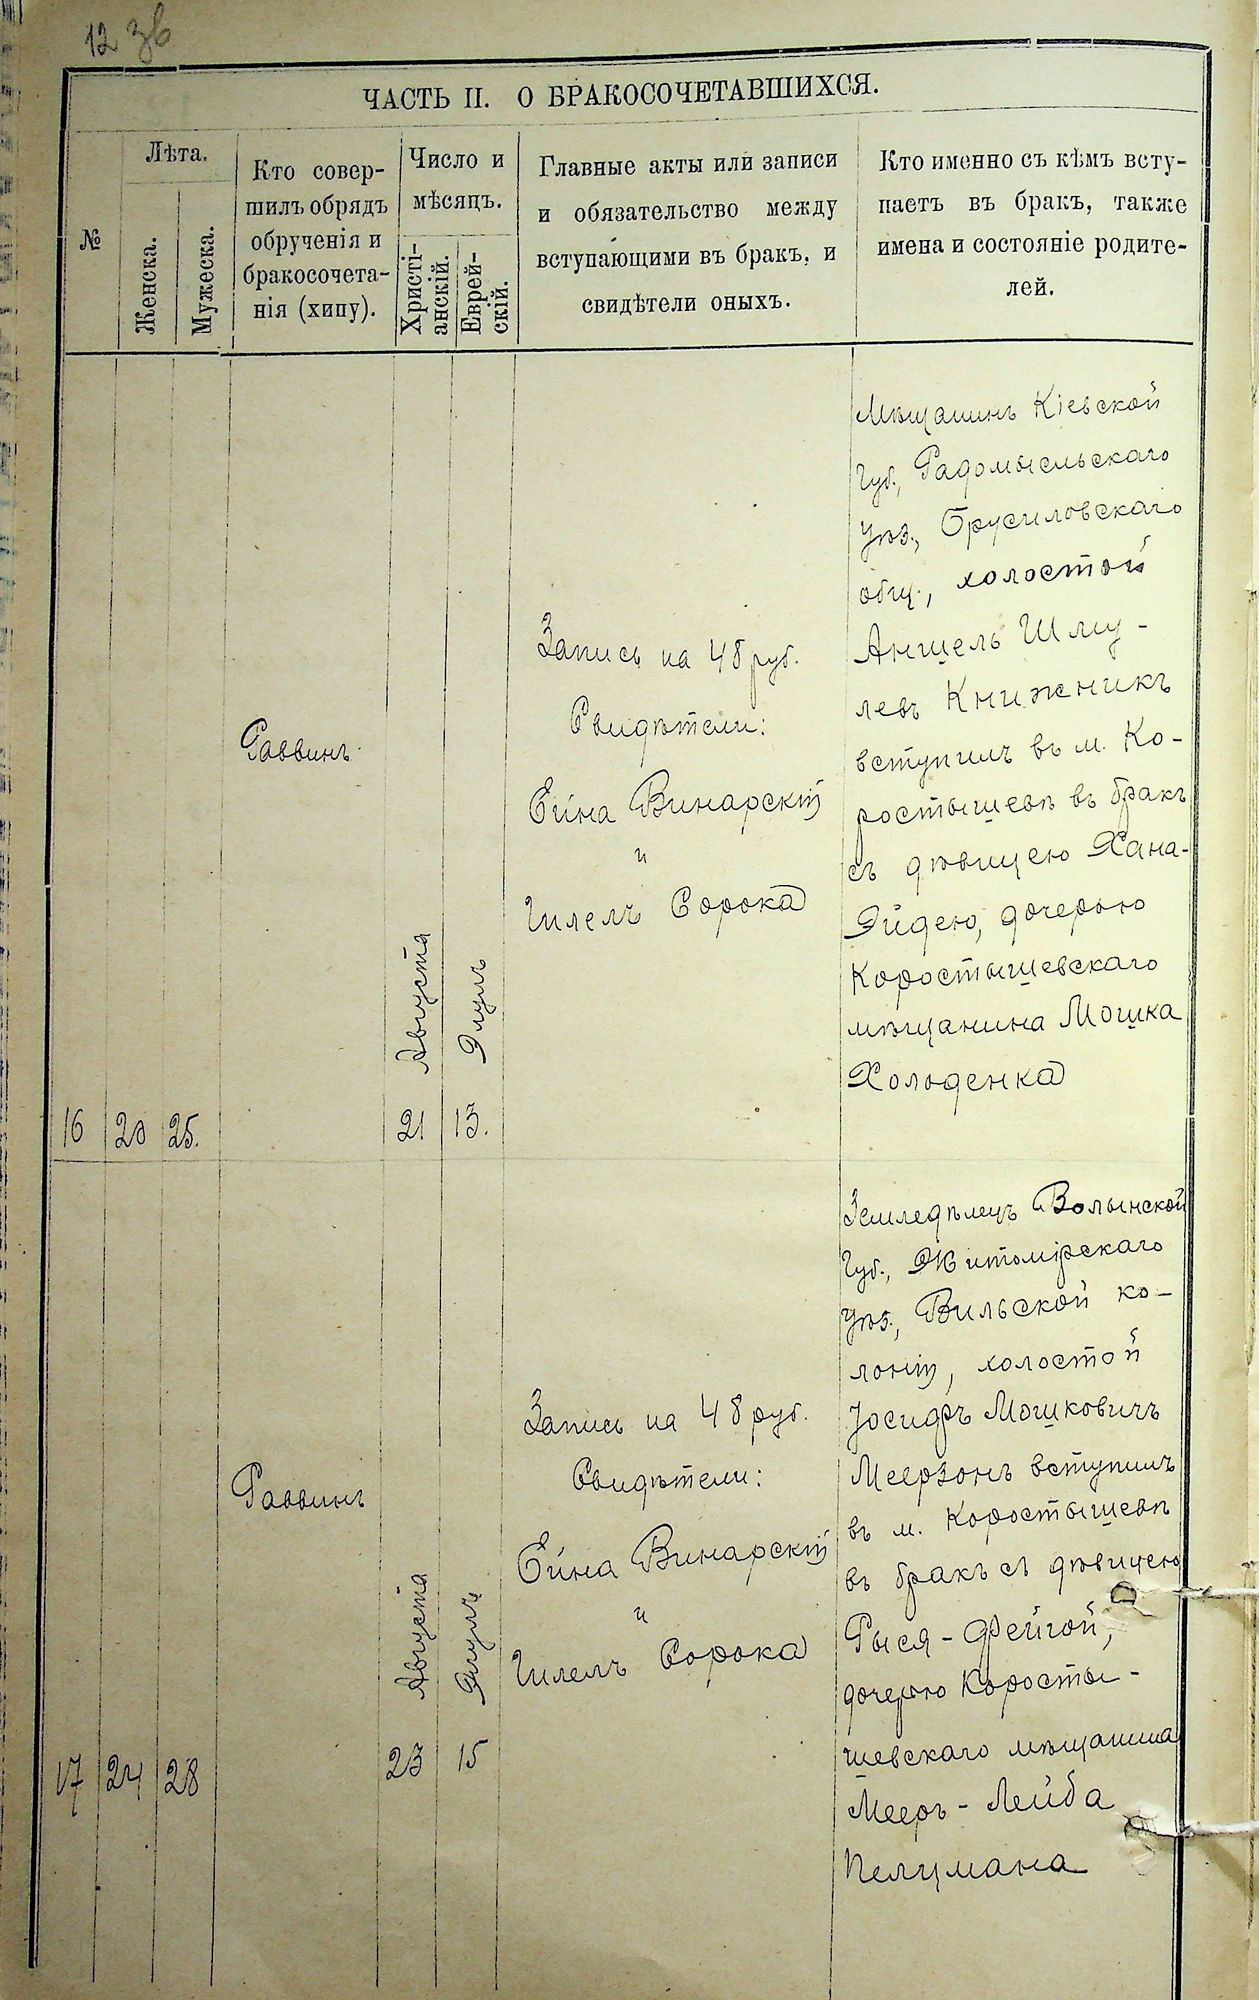 12 зв
ЧАСТЬ II. О БРАКОСОЧЕТАВШИХСЯ.
№
Лѣта.
Женска.
Мужеска.
Кто совер-
шилъ обрядъ
обрученія и
бракосочета-
нія (хипу).
Число и
мѣсяцъ.
Христі-
анскій.
Еврей-
скій.
Главные акты или записи
и обязательство между
вступающими въ бракъ, и
свидѣтели оныхъ.
Кто именно съ кѣмъ всту-
паетъ въ бракъ, также
имена и состояніе родите-
лей.
16
20
25.
Раввинъ
Августа
21
Элулъ
13.
Запись на 48 руб.
Свидѣтели:
Ейна Винарскій
и
Гилелъ Сорока
Мѣщанинъ Кіевской
Губ., Радомысльскаго
уѣз., Брусиловскаго
общ., холостой
Аншель Шму-
левъ Книжникъ
вступилъ въ м. Ко-
ростышевѣ въ бракъ
съ дѣвицею Хана-
Эйдею, дочерью
Коростышевскаго
мѣщанина Мошка
Холоденка
17
24
28
Раввинъ
Августа
23
Элулъ
15
Запись на 48 руб.
Свидѣтели:
Ейна Винарскій
и
Гилелъ Сорока
Земледѣлецъ Волынской
Губ., Житомірскаго
уѣз., Вильской ко-
лоніи, холостой
Іосифъ Мошковичъ
Меерзонъ вступилъ
въ м. Коростышевѣ
въ бракъ съ дѣвицею
Рыся-Фейгой,
дочерью Коросты-
шевскаго мѣщанина
Мееръ-Лейба
Пелцмана